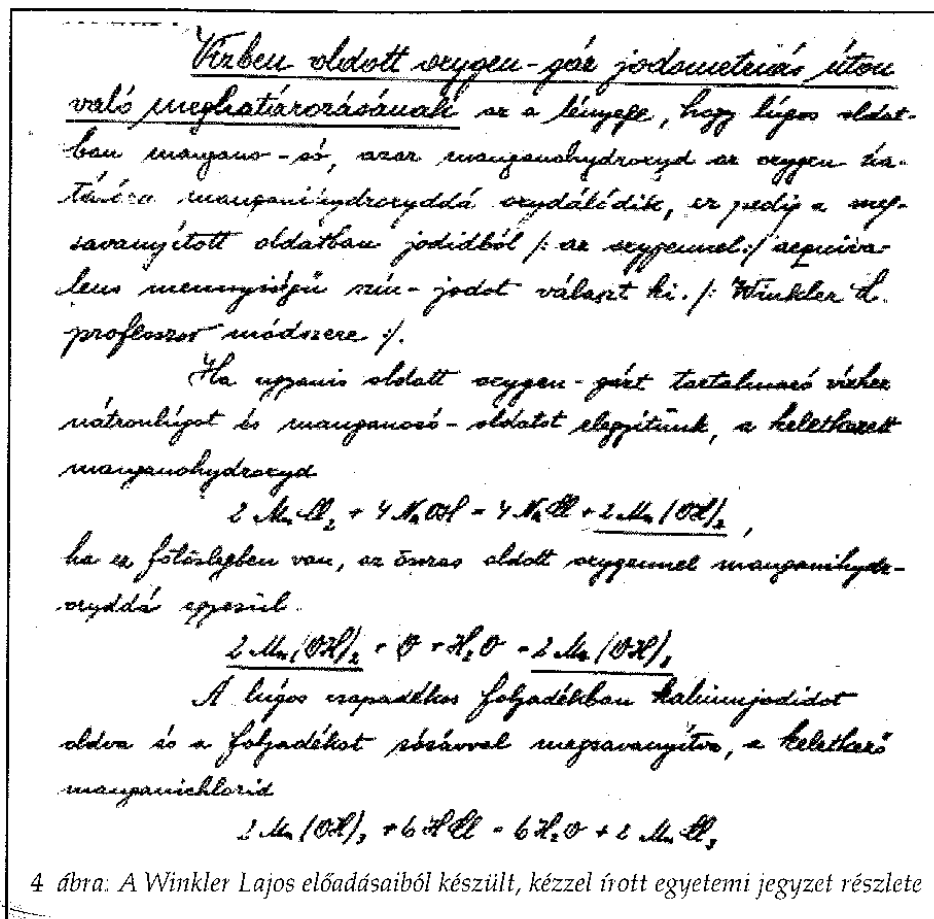 Vízben oldott oxygen-gáz jodometriás úton
való meghatározásának az a lényege, hogy lúgos oldat-
ban mangano-só, azaz manganohydroxyd az oxygen ha-
tására manganihydroxyddá oxydálódik, ez pedig a meg-
savanyított oldatban jodidból /: az oxygennel :/ aequiva-
lens mennyiségű szín-jodot választ ki. /: Winkler L.
professzor módszere :/.
Ha ugyanis oldott oxygen-gázt tartalmazó vízhez
nátronlúgot és manganosó-oldatot elegyítünk, a keletkezett
manganohydroxyd
2 MnCl₂ + 4 NaOH = 4 NaCl + 2 Mn(OH)₂ ,
ha ez fölöslegben van, az összes oldott oxygennel manganihydr-
oxyddá egyesül.
2 Mn(OH)₂ + O + H₂O = 2 Mn(OH)₃
A lúgos csapadékos folyadékban kaliumjodidot
oldva és a folyadékot sósavval megsavanyítva, a keletkező
manganichlorid
2 Mn(OH)₃ + 6 HCl = 6 H₂O + 2 MnCl₃
4 ábra: A Winkler Lajos előadásaiból készült, kézzel írott egyetemi jegyzet részlete